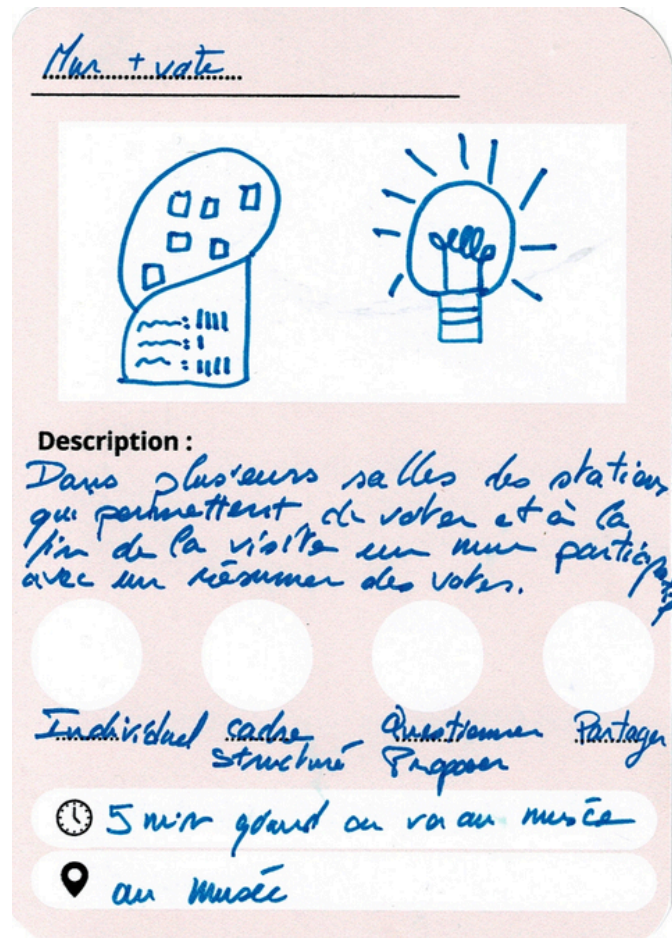 Mur + vote
Description :
Dans plusieurs salles des stations
qui permettent de voter et à la
fin de la visite un mur participatif
avec un résumer des votes.
Individuel cadre Questionner Partager
structuré Proposer
5 min quand on va au musée
au musée